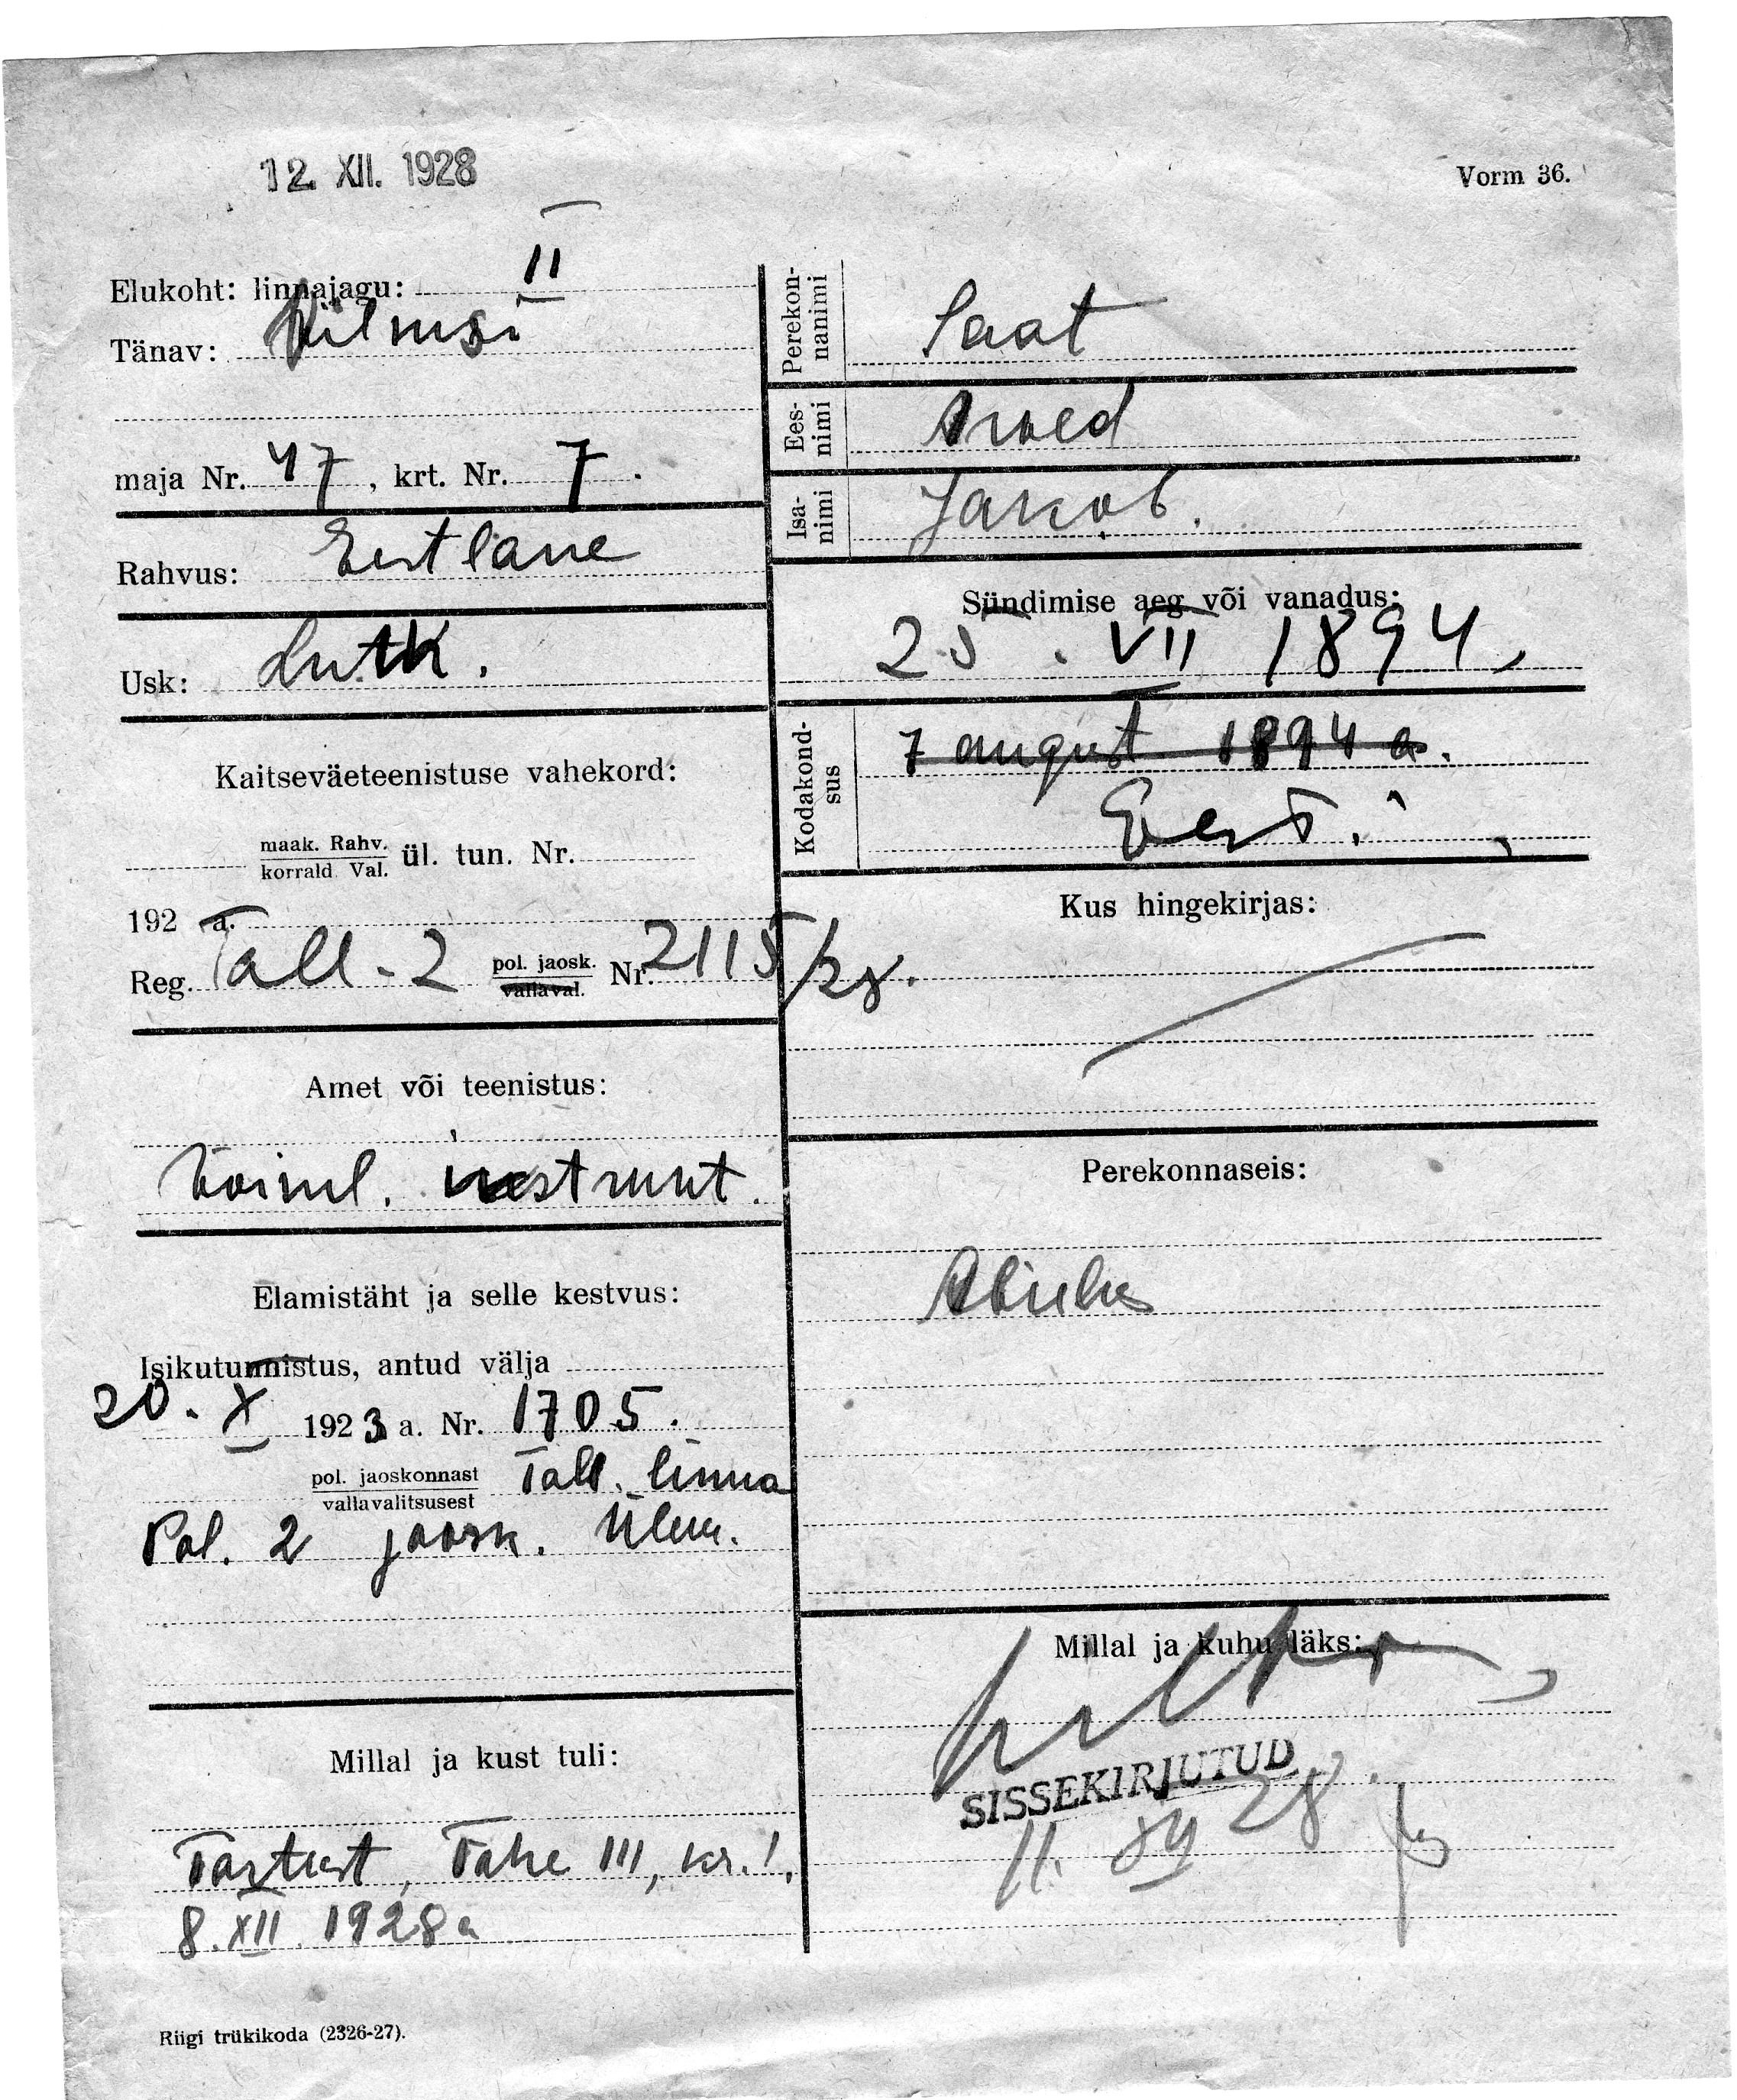 12. XII. 1928
Vorm 36.
Elukoht: linnajagu: II
Tänav: Vilmsi
maja Nr. 47, krt. Nr. 7.
Rahvus: Eestlane
Usk: Luth.
Kaitseväeteenistuse vahekord:
maak. Rahv.
korrald. Val. ül. tun. Nr.
192 a.
Reg. Tall-2 pol. jaosk. Nr. 2115/28.
vallaval.
Amet või teenistus:
Võiml.
Elamistäht ja selle kestvus:
Isikutunnistus, antud välja
20. X 1923 a. Nr. 1705.
pol. jaoskonnast Tall. linna
vallavalitsusest
Pol. 2 jaosk. Ülem.
Millal ja kust tuli:
Tartust, Tähe 111, kr. 1,
8. XII. 1928 a
Perekonnanimi Saat
Eesnimi Arved
Isanimi Jakob.
Sündimise aeg või vanadus:
25. VII 1894,
Kodakondsus 7 august 1894 a.
Eesti
Kus hingekirjas:
Perekonnaseis:
Abielus
Millal ja kuhu läks:
SISSEKIRJUTUD
11. XII 28
Riigi trükikoda (2326-27).